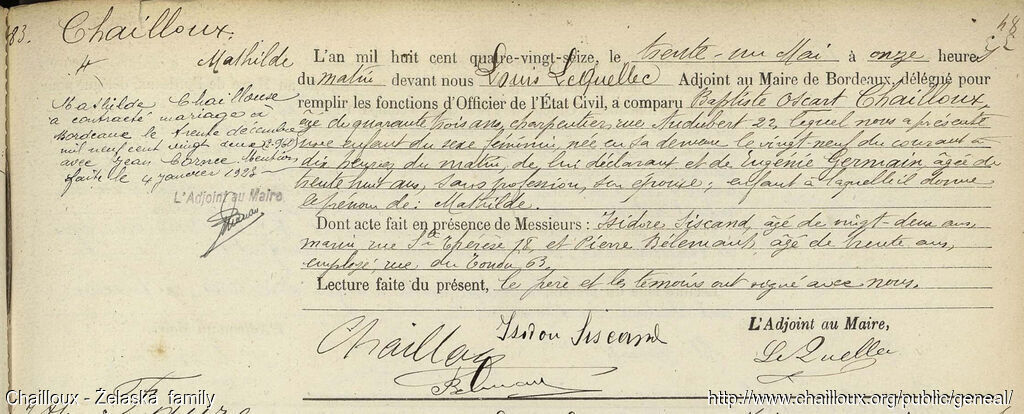 83.
Chailloux,
Mathilde
Mathilde Chailloux
a contracté mariage à
Bordeaux le trente décembre
mil neuf cent vingt deux
avec Jean Mention
faite le 4 janvier 1923
L'Adjoint au Maire
L'an mil huit cent quatre-vingt-seize, le trente-un Mai à onze heures
du matin devant nous Louis LeQuellec Adjoint au Maire de Bordeaux, délégué pour
remplir les fonctions d'Officier de l'État Civil, a comparu Baptiste Oscart Chailloux,
âgé de quarante trois ans, charpentier, rue Audubert 22, lequel nous a présenté
un enfant du sexe féminin, née en sa demeure le vingt-neuf du courant à
dix heures du matin, de lui déclarant et de Eugénie Germain, âgée de
trente huit ans, sans profession, son épouse; enfant à laquelle il donne
le prénom de: Mathilde.
Dont acte fait en présence de Messieurs : Isidore Siscand, âgé de vingt-deux ans,
marin, rue Ste Thérèse 18, et Pierre Bélemant, âgé de trente ans,
employé, rue du 63.
Lecture faite du présent, le père et les témoins ont signé avec nous.
Chailloux
Isidore Siscand
L'Adjoint au Maire,
Le Quellec
Chailloux - Żelaska family
http://www.chailloux.org/public/geneal/